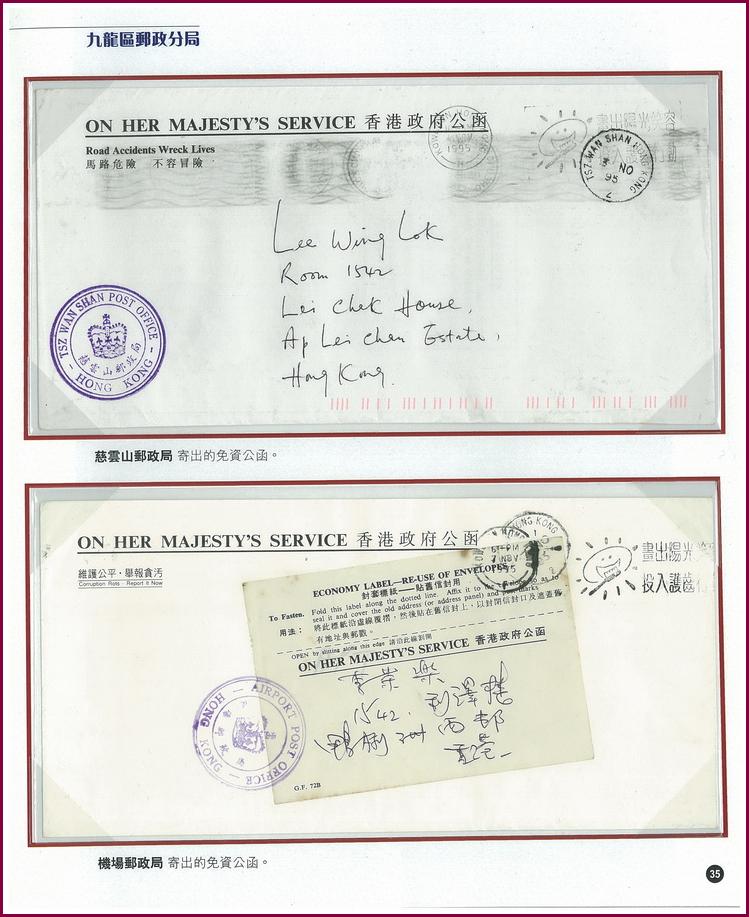 九龍區郵政分局
ON HER MAJESTY'S SERVICE 香港政府公函
Road Accidents Wreck Lives
馬路危險 不容冒險
1995
畫出陽光笑容
TSZ WAN SHAN HONG KONG
NO
95
2
Lee Wing Lok
Room 1542
Lei Chak House,
Ap Lei Chau Estate,
Hong Kong.
TSZ WAN SHAN POST OFFICE
慈雲山郵政局
- HONG KONG -
慈雲山郵政局 寄出的免資公函。
ON HER MAJESTY'S SERVICE 香港政府公函
維護公平·舉報貪污
Corruption Rots · Report it Now
HONG KONG
畫出陽光
投入護齒
ECONOMY LABEL—RE-USE OF ENVELOPES
封套標紙——貼舊信封用
To Fasten. Fold this label along the dotted line. Affix it to the envelope so as to
seal it and cover the old address (or address panel) and postmarks
用法: 將此標紙沿虛線覆摺,然後貼在舊信封上,以封閉信封口及遮蓋舊
有地址與郵戳。
OPEN by slitting along this edge 請沿此線割開
ON HER MAJESTY'S SERVICE 香港政府公函
李榮樂
1542 利澤樓
鴨脷洲西邨
香港
AIRPORT POST OFFICE
HONG KONG
G.F. 72B
機場郵政局 寄出的免資公函。
35